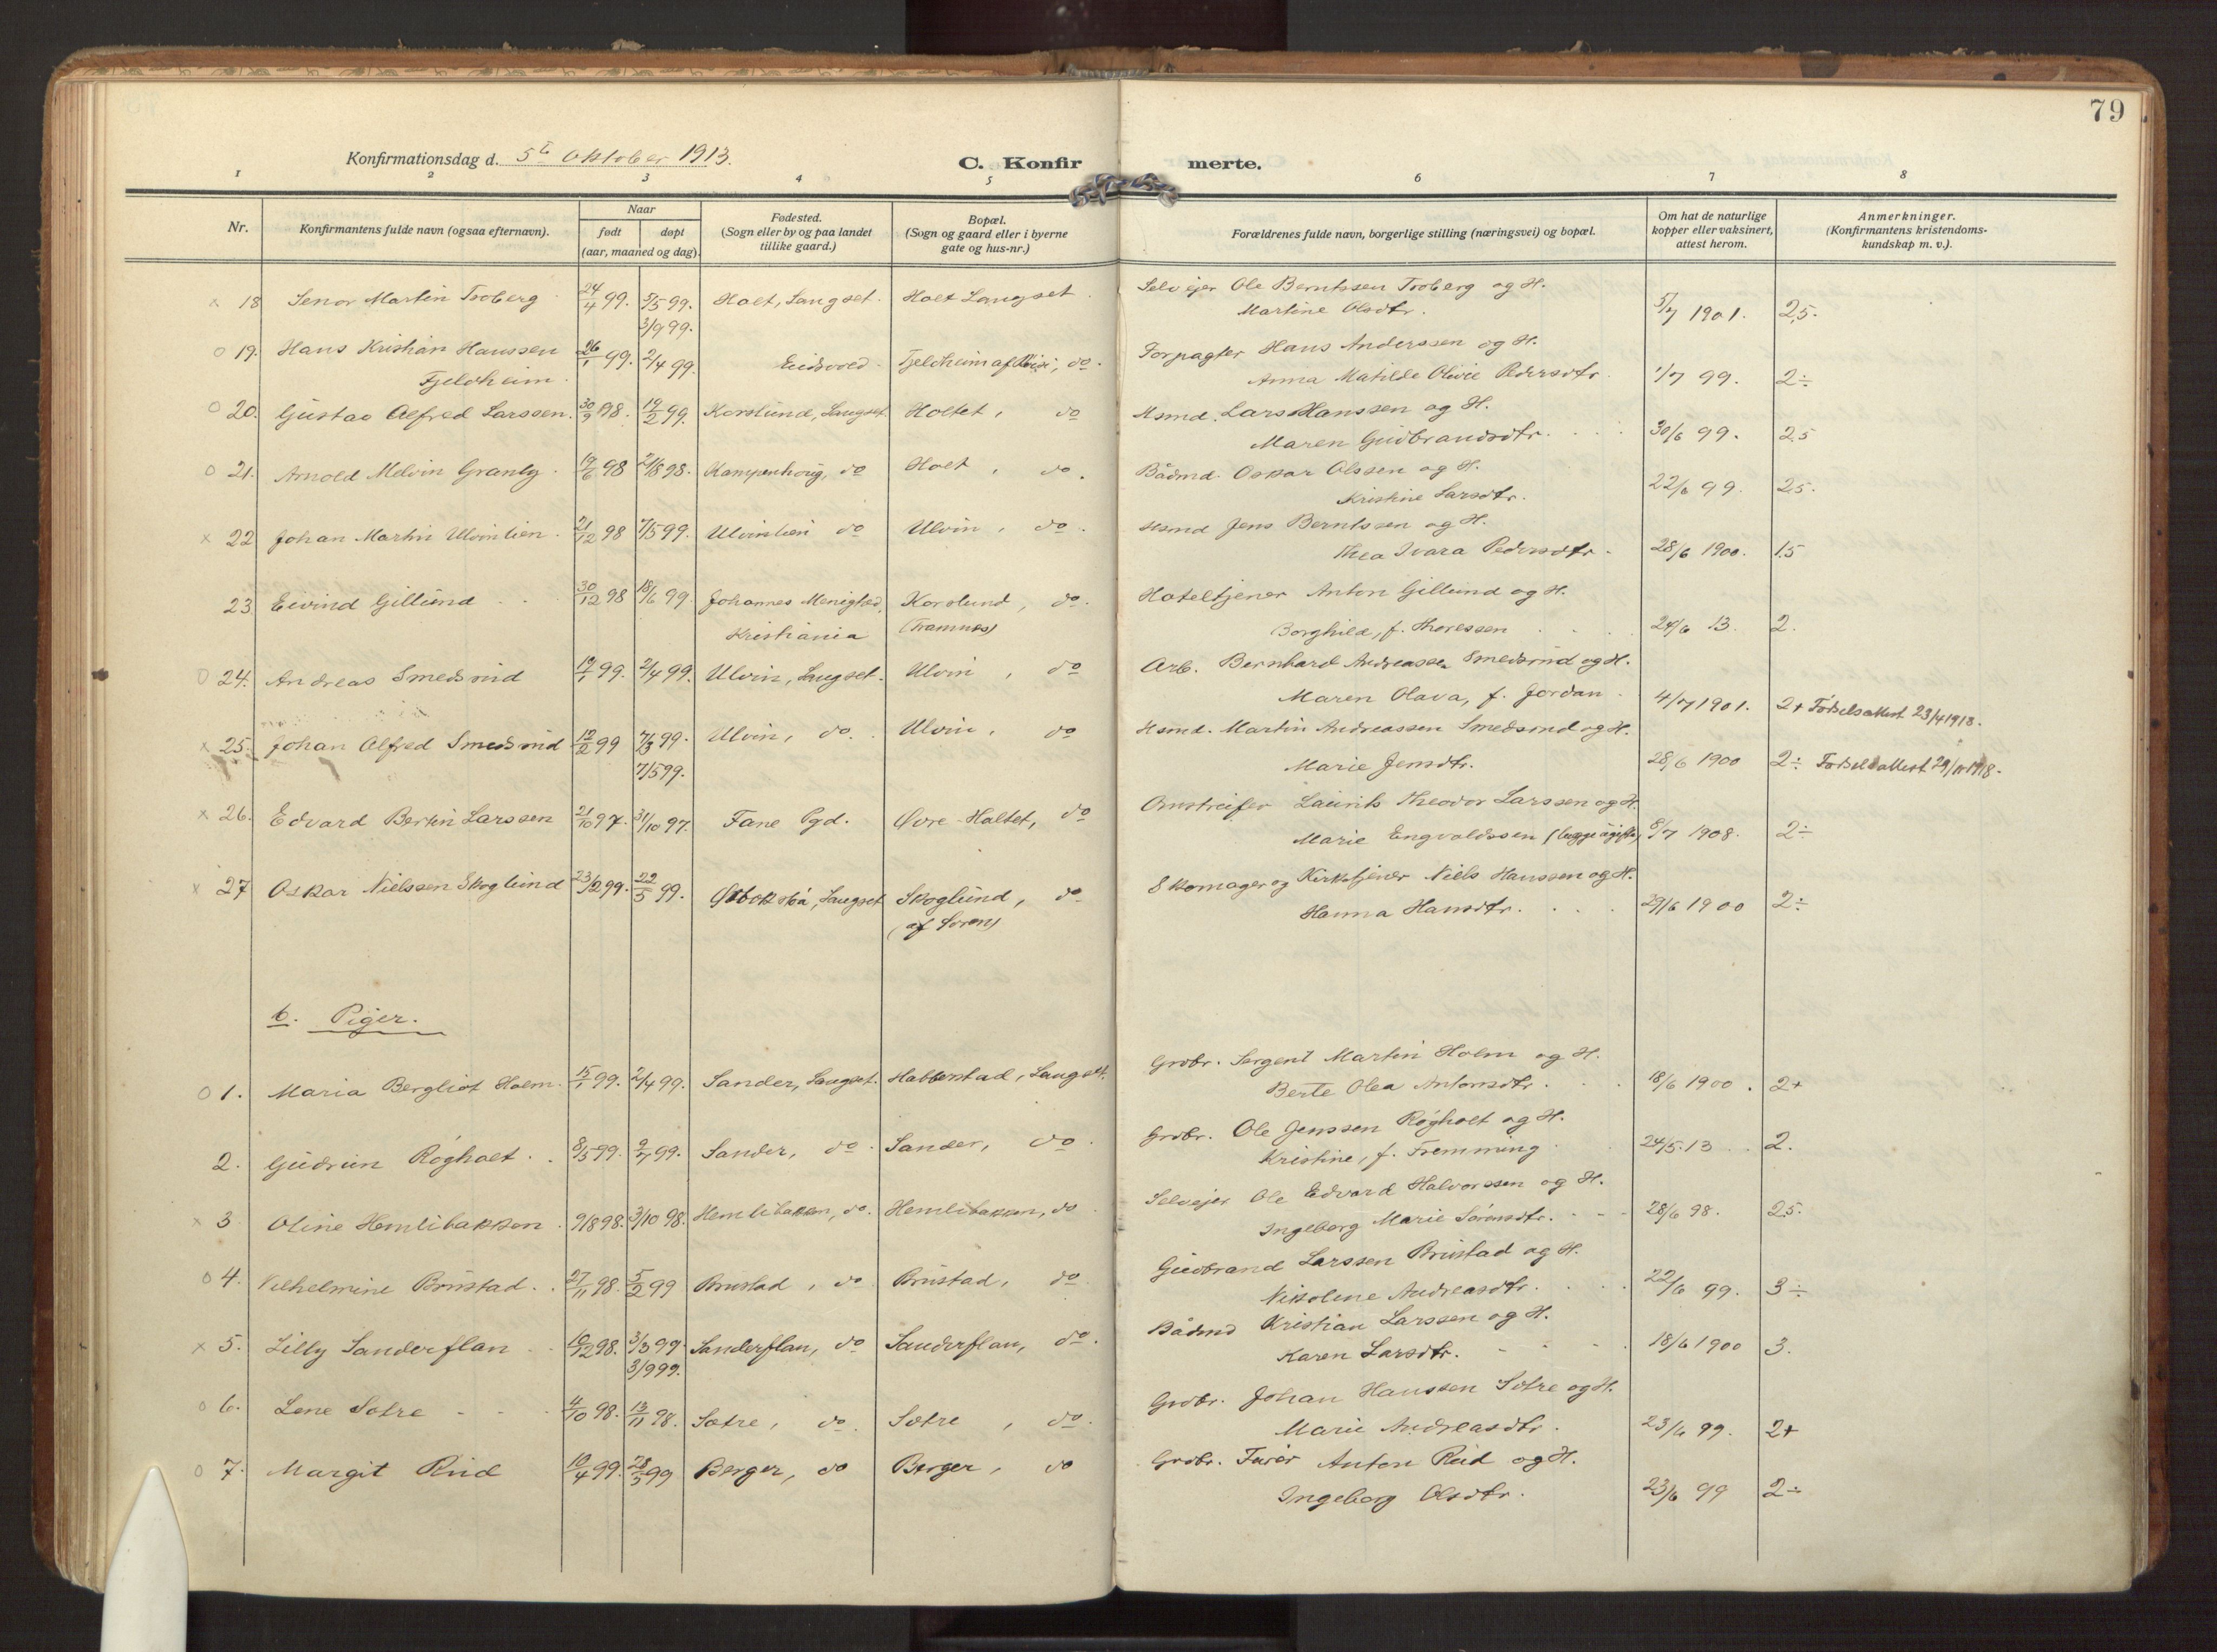 79
Konfirmationsdag d. 5te Oktober 1913.
C. Konfirmerte.
1 2 3 4 5 6 7 8
Nr.
Konfirmantens fulde navn (ogsaa efternavn).
Naar
født døpt
(aar, maaned og dag).
Fødested.
(Sogn eller by og paa landet
tillike gaard.)
Bopæl.
(Sogn og gaard eller i byerne
gate og hus-nr.)
Forældrenes fulde navn, borgerlige stilling (næringsvei) og bopæl.
Om hat de naturlige
kopper eller vaksinert,
attest herom.
Anmerkninger.
(Konfirmantens kristendoms-
kundskap m. v.).
x 18 Senor Martin Troberg 24/4 99. 5/5 99. Holt, Langset. Holt Langset. Selvejer Ole Berntssen Troberg og H.
3/9 99. Martine Olsdtr. 5/7 1901. 2,5.
o 19. Hans Kristian Hanssen 26/1 99. 2/4 99. Eidsvold. Fjeldheim af, do. Forpagter Hans Anderssen og H.
Fjeldheim. Anna Matilde Olivie Pedersdtr. 1/7 99. 2÷
o 20. Gustav Alfred Larssen. 30/9 98. 19/2 99. Korslund, Langset. Holtet, do Hsmd. Lars Hanssen og H.
Maren Gudbrandsdtr. 30/6 99. 2,5
o 21. Arnold Melvin Granly. 19/6 98 21/8 98. Kampenhoug, do Holt, do. Bådmd. Oskar Olssen og H.
Kristine Larsdtr. 22/6 99. 2,5.
x 22 Johan Martin Ulvinlien. 21/12 98 7/5 99. Ulvinlien do Ulvin, do. Hsmd Jens Berntssen og H.
Thea Ivara Pedersdtr. 28/6 1900. 1,5
23 Eivind Gillund 30/12 98 18/6 99. Johannes Menighed, Korslund, do. Hoteltjener Anton Gillund og H.
Kristiania (Framnes) Borghild, f. Thoressen 24/6 13. 2.
o 24. Andreas Smedsrud 19/1 99. 2/4 99. Ulvin, Langset. Ulvin, do Arb. Bernhard Andreassen Smedsrud og H.
Maren Olava, f. Jordan 4/7 1901. 2+ Fødselsattest 23/4 1918.
x 25. Johan Alfred Smedsrud 12/2 99 7/3 99. Ulvin, do. Ulvin, do Hsmd. Martin Andreassen Smedsrud og H.
7/5 99. Marie Jensdtr. 28/6 1900 2÷ Fødselsattest 1918.
x 26. Edvard Bertin Larssen 21/10 97. 31/10 97. Fane Pgd. Øvre-Holtet, do Omstreifer Laurits Theodor Larssen og H.
Marie Engvaldssen (begge ugifte) 8/7 1908. 2÷
x 27 Oskar Nielssen Skoglund 23/2 99. 22/5 99. , Langset Skoglund, do Skomager og Kirketjener Niels Hanssen og H.
(af Loren) Hanna Hansdtr. 29/6 1900 2÷
b. Piger.
o 1. Maria Bergliot Holm. 15/1 99. 2/4 99. Sander, Langset. Habberstad, Langset. Grdbr. Sergent Martin Holm og H.
Berte Olea Antonsdtr. 18/6 1900. 2+
2. Gudrun Røgholt. 8/5 99. 9/7 99. Sander, do. Sander, do. Grdbr. Ole Jenssen Røgholt og H.
Kristine, f. Fremming 24/5 13. 2.
x 3. Oline Hemlibakken. 9/8 98. 3/10 98. Hemlibakken, do. Hemlibakken, do. Selvejer Ole Edvard Halvorssen og H.
Ingeborg Marie Sørensdtr. 28/6 98. 2,5.
o 4. Vilhelmine Brustad. 27/11 98. 5/2 99 Brustad, do Brustad, do. Gudbrand Larssen Brustad og H.
Nikoline Andreasdtr. 22/6 99. 3÷
x 5. Lilly Sanderflan 10/12 98. 3/3 99 Sanderflan, do Sanderflan, do. Bådmd Kristian Larssen og H.
3/9 99. Karen Larsdtr. 18/6 1900 3.
o 6. Lene Sætre 4/10 98. 13/11 98. Sætre, do. Sætre, do. Grdbr. Johan Hanssen Sætre og H.
Marie Andreasdtr. 23/6 99. 2+
o 7. Margit Rud 10/4 99. 28/5 99 Berger, do Berger, do Grdbr. Furér Anton Rud og H.
Ingeborg Olsdtr. 23/6 99 2÷